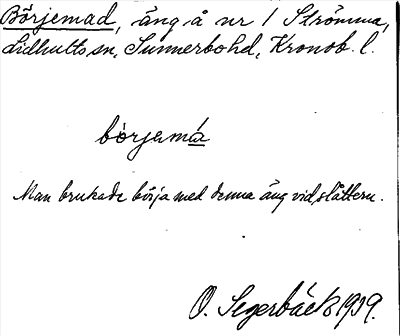 Börjemad, äng å nr 1 Strömma,
Lidhults sn, Sunnerbo hd, Kronob. l.
börjemá
Man brukade börja med denna äng vid slåttern.
O. Segerbäck 1939.